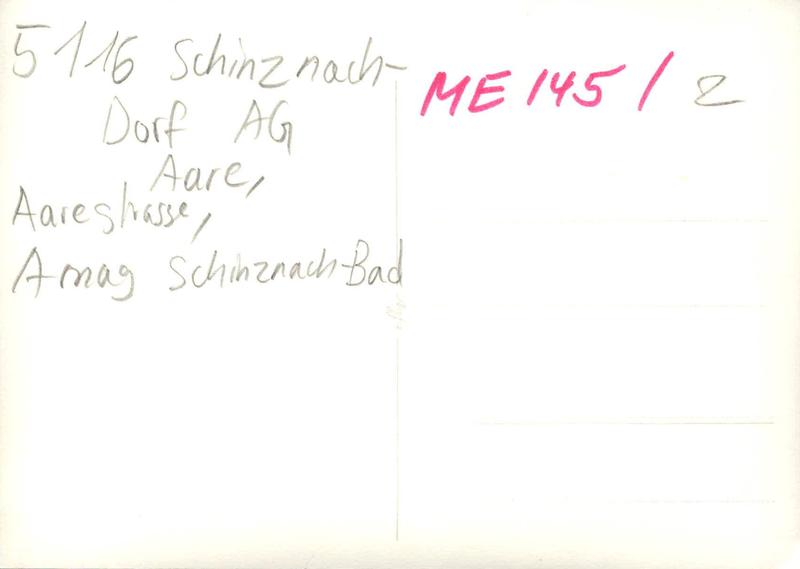 5116 Schinznach-
Dorf AG
Aare,
Aarestrasse,
Amag Schinznach-Bad
ME 145 / 2